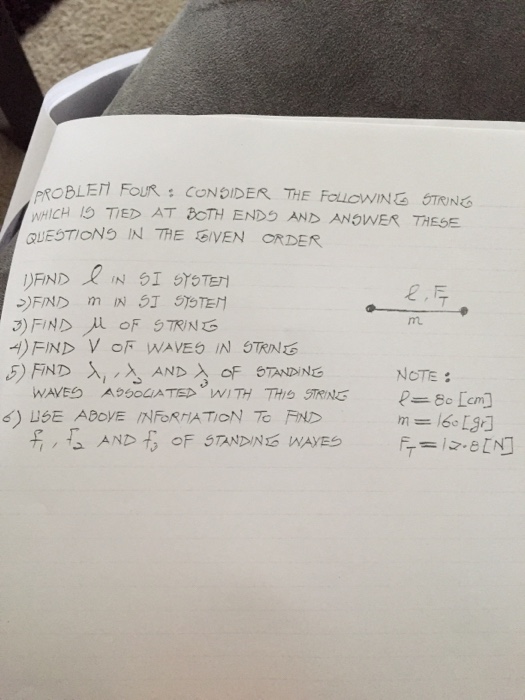 PROBLEM FOUR : CONSIDER THE FOLLOWING STRING
WHICH IS TIED AT BOTH ENDS AND ANSWER THESE
QUESTIONS IN THE GIVEN ORDER
1) FIND ℓ IN SI SYSTEM
2) FIND m IN SI SYSTEM
3) FIND μ OF STRING
4) FIND V OF WAVES IN STRING
5) FIND λ₁, λ₂ AND λ₃ OF STANDING
WAVES ASSOCIATED WITH THIS STRING
6) USE ABOVE INFORMATION TO FIND
f₁, f₂ AND f₃ OF STANDING WAVES
ℓ, F_T
m
NOTE :
ℓ = 80 [cm]
m = 160 [gr]
F_T = 12.8 [N]